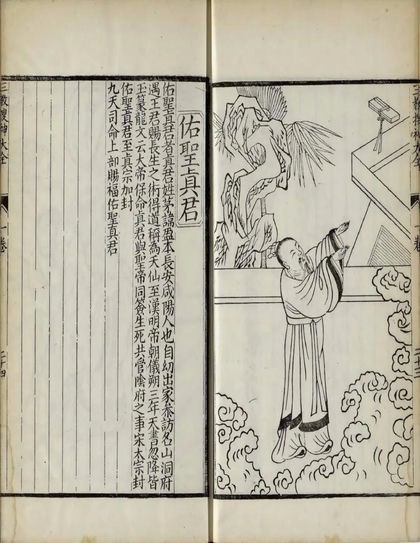 佑聖眞君
佑聖眞君者眞君姓茅諱盈本長安咸陽人也自幼出家叅訪名山洞府
遇王君賜長生之術得道稱為天仙至漢明帝朝儀朔三年天書忽降皆
玉篆龍文云大帝保命眞君與聖帝同簽生死共管陰府之事宋太宗封
佑聖眞君至眞宗加封
九天司命上部賜福佑聖眞君
三教搜神大全
一卷
二十四